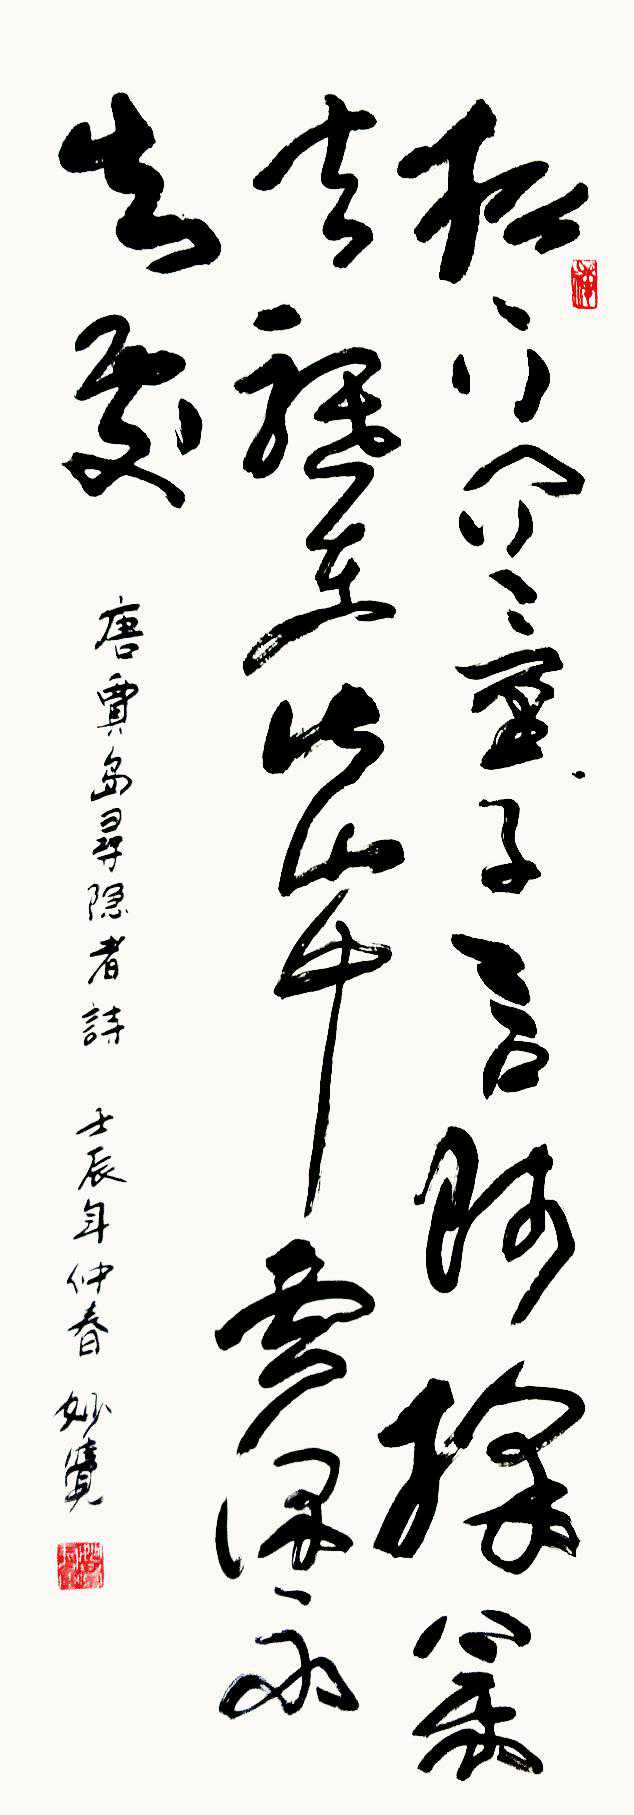 松下問童子言師採藥
去祇在此山中雲深不
知處
唐賈島尋隐者詩 壬辰年仲春 妙覺